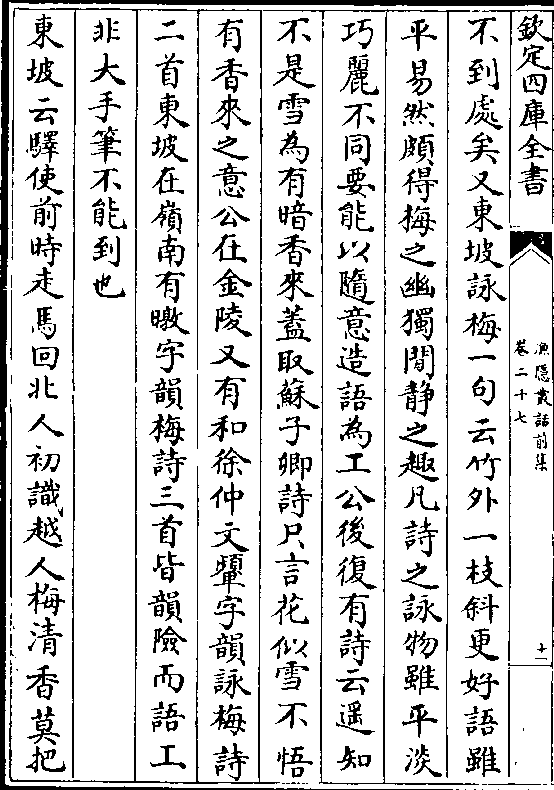 欽定四庫全書
漁隱叢話前集
卷二十七
十一
不到處矣又東坡詠梅一句云竹外一枝斜更好語雖
平易然頗得梅之幽獨閒靜之趣凡詩之詠物雖平淡
巧麗不同要能以隨意造語為工公後復有詩云遥知
不是雪為有暗香來蓋取蘇子卿詩只言花似雪不悟
有香來之意公在金陵又有和徐仲文顰字韻詠梅詩
二首東坡在嶺南有暾字韻梅詩三首皆韻險而語工
非大手筆不能到也
東坡云驛使前時走馬回北人初識越人梅清香莫把